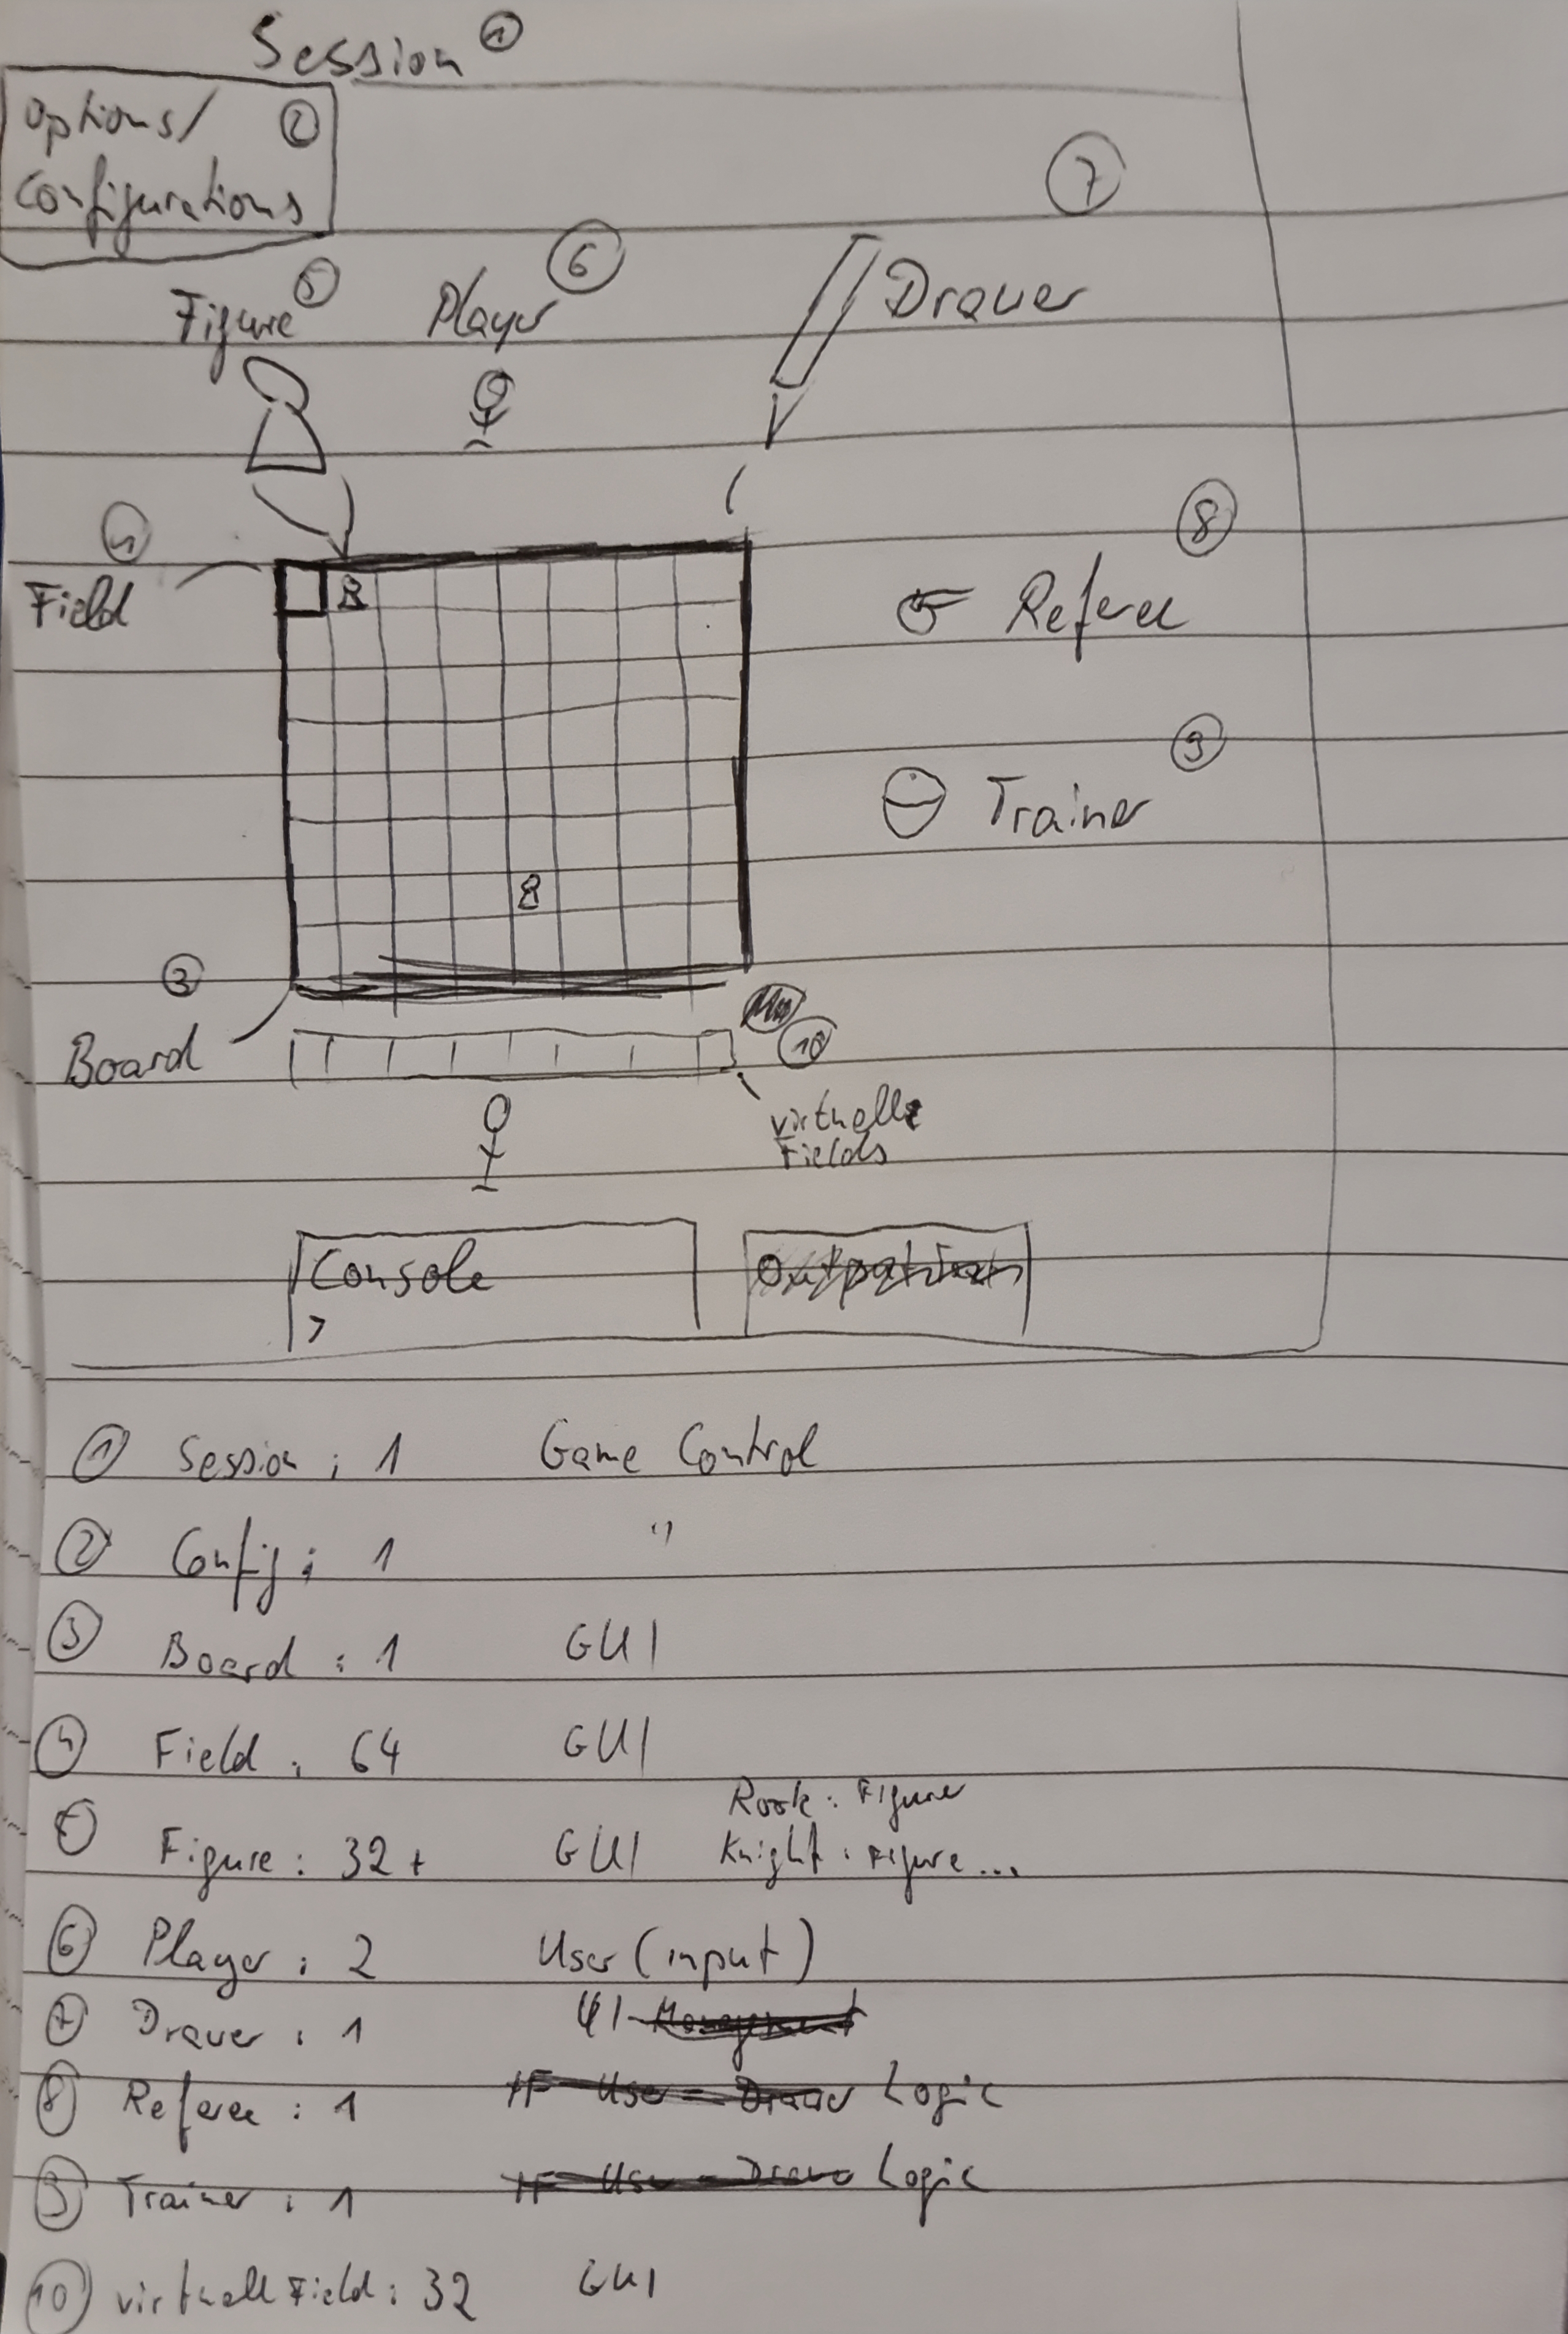 Session 1
Options/ 2
Configurations
7
Figure 5 Player 6
Drawer
4
Field
8
Referee
9
Trainer
3
Board
10
virtuelle
Fields
Console
>
1 Session : 1 Game Control
2 Config : 1 "
3 Board : 1 GUI
4 Field : 64 GUI
Rook : Figure
5 Figure : 32+ GUI Knight : Figure...
6 Player : 2 User (input)
7 Drawer : 1 UI-Management
8 Referee : 1 IF User - Drawer Logic
9 Trainer : 1 IF User - Drawer Logic
10 virtuell Field : 32 GUI